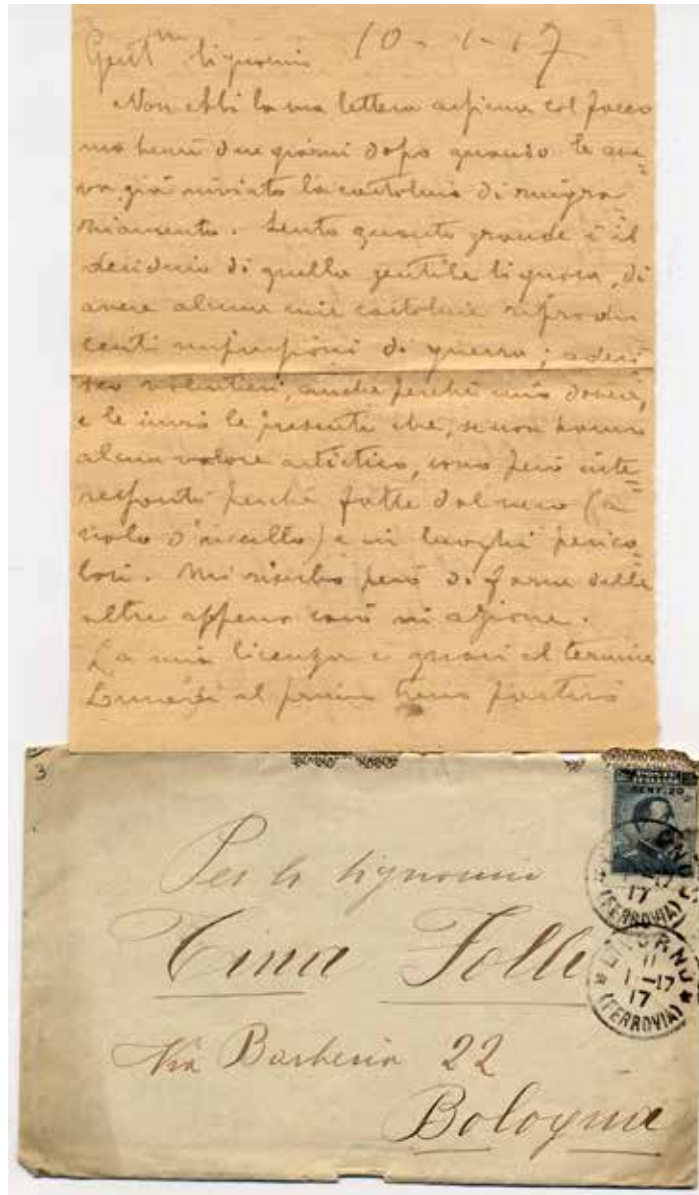 Gent.ma Signorina 10-1-17
Non ebbi la sua lettera assieme col pacco
ma bensì due giorni dopo quando le ave=
va già inviato la cartolina di ringra=
ziamento. Sento quanto grande è il
desiderio di quella gentile Signora, di
avere alcune mie cartoline riprodu
centi impressioni di guerra; aderi
sco volentieri, anche perchè mio dovere,
e le invio le presenti che, se non hanno
alcun valore artistico, sono però inte=
ressanti perchè fatte dal vero (a
volo d'uccello) e in luoghi perico=
losi. Mi riserbo però di farne delle
altre appena sarò in azione.
La mia licenza è quasi al termine
Lunedì al primo treno partirò
3
CENT. 20
Per la Signorina
Tina
Via Barberia 22
Bologna
LIVORNO
11
1-17
17
(FERROVIA)
17
(FERROVIA)